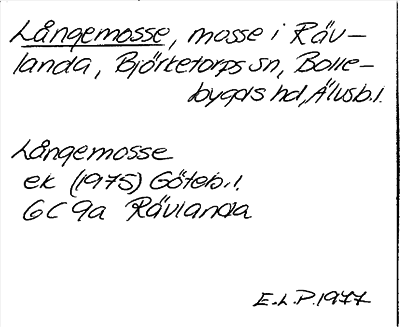 Långemosse, mosse i Räv-
landa, Björketorps sn, Bolle-
bygds hd, Älvsb.l.
Långemosse
ek (1975) Göteb.l.
6C 9a Rävlanda
E.L.P. 1977